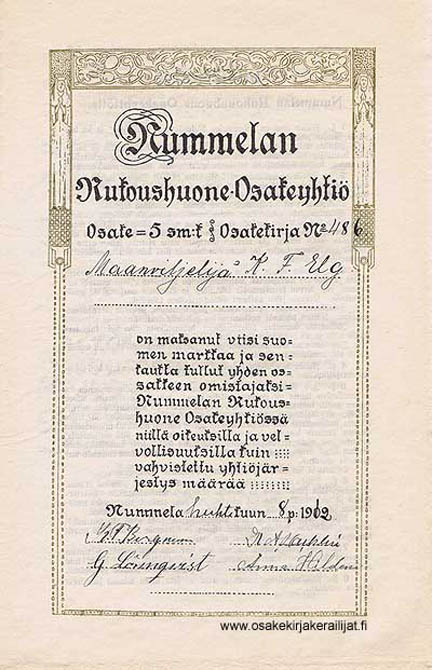 Nummelan
Rukoushuone-Osakeyhtiö
Osake = 5 sm:k Osakekirja № 486
Maanviljelijä K. F. Elg
on maksanut viisi suo=
men markkaa ja sen=
kautta tullut yhden os=
sakkeen omistajaksi=
Nummelan Rukous=
huone Osakeyhtiössä
niillä oikeuksilla ja vel=
vollisuuksilla kuin ::::
vahvistettu yhtiöjär=
jestys määrää ::::::::
Nummela huhtikuun 8 p: 1912
G. Lönnqvist Anna Hildén
www.osakekirjakerailijat.fi